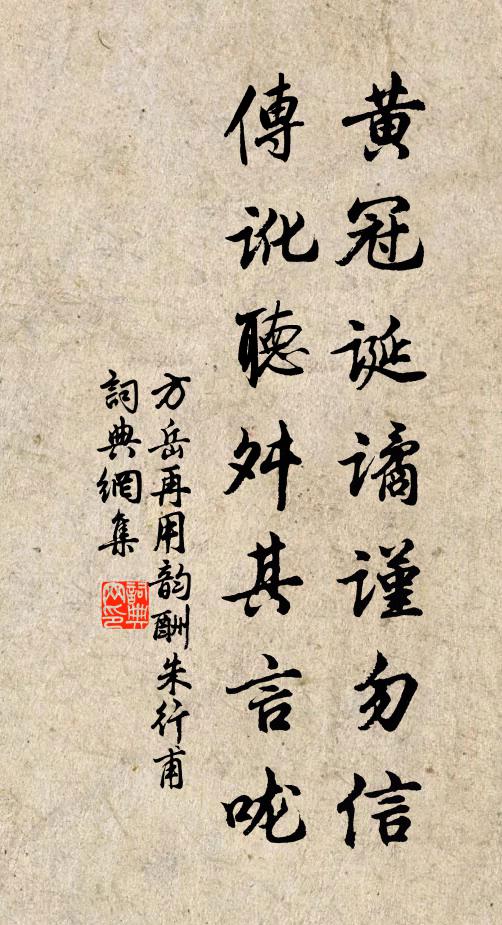 黄冠誕譎謹勿信
傳訛聽舛其言咙
方岳再用韵酬朱行甫
詞典網集
詞典網印